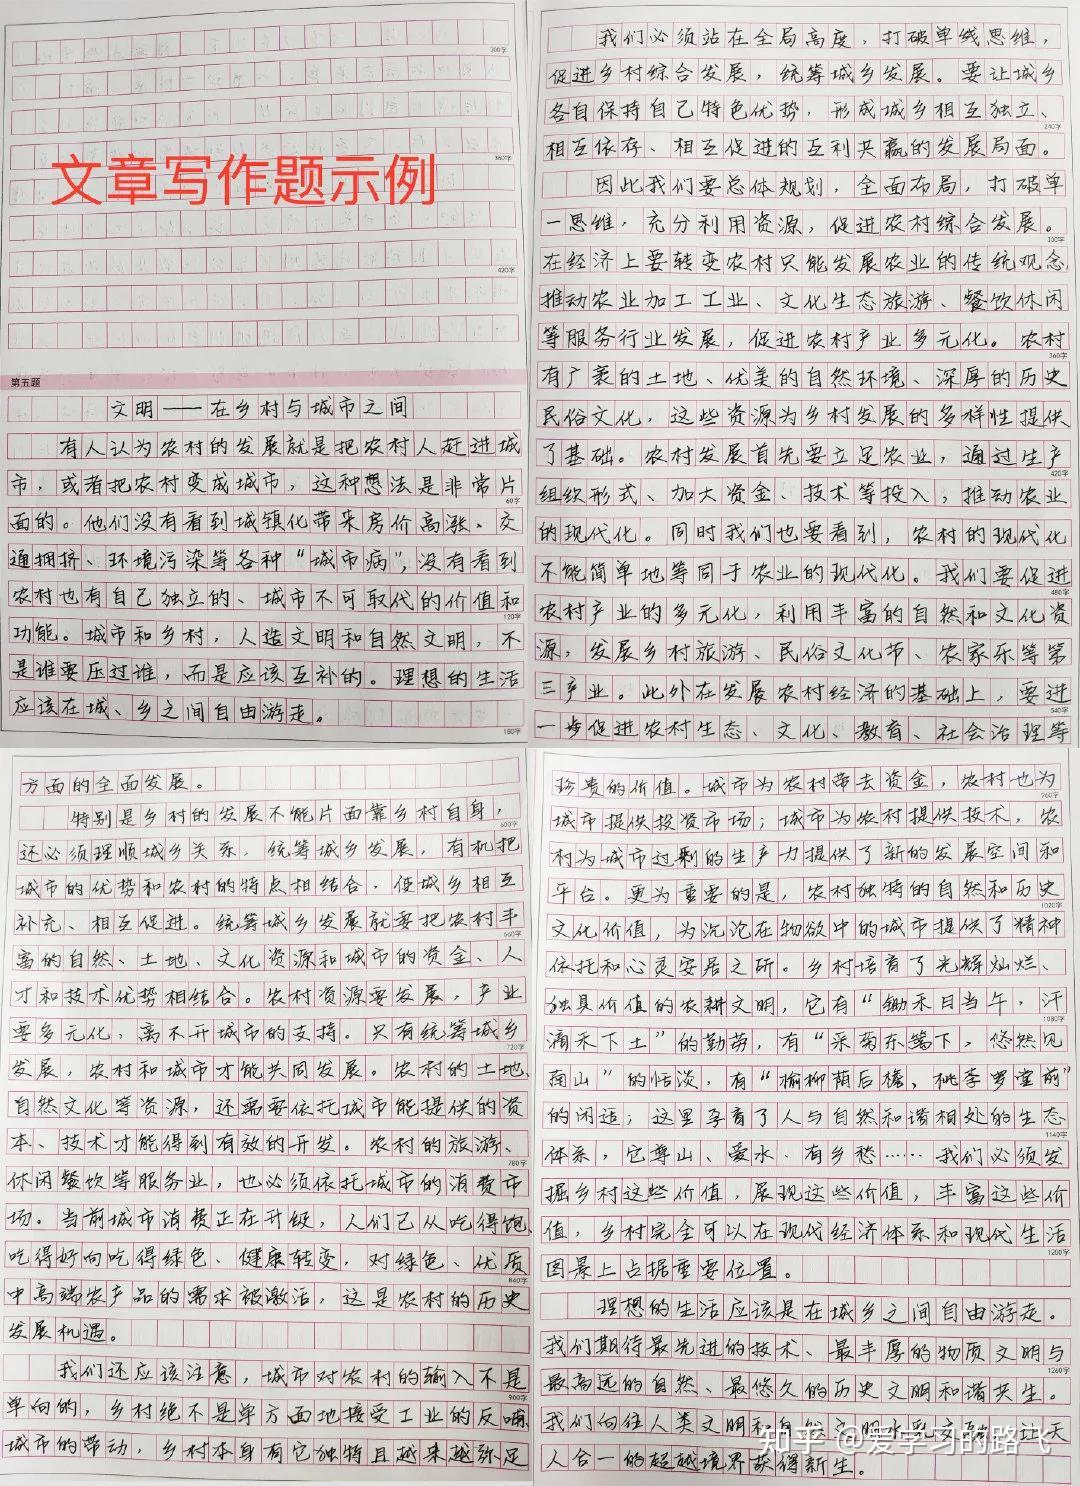 300字
360字
文章写作题示例
420字
第五题
文明——在乡村与城市之间
有人认为农村的发展就是把农村人赶进城
市，或者把农村变成城市，这种想法是非常片
60字
面的。他们没有看到城镇化带来房价高涨、交
通拥挤、环境污染等各种“城市病”，没有看到
农村也有自己独立的、城市不可取代的价值和
120字
功能。城市和乡村，人造文明和自然文明，不
是谁要压过谁，而是应该互补的。理想的生活
应该在城、乡之间自由游走。
180字
我们必须站在全局高度，打破单线思维，
促进乡村综合发展，统筹城乡发展。要让城乡
各自保持自己特色优势，形成城乡相互独立、
240字
相互依存、相互促进的互利共赢的发展局面。
因此我们要总体规划，全面布局，打破单
一思维，充分利用资源，促进农村综合发展。
300字
在经济上要转变农村只能发展农业的传统观念
推动农业加工工业、文化生态旅游、餐饮休闲
等服务行业发展，促进农村产业多元化。农村
360字
有广袤的土地、优美的自然环境、深厚的历史
民俗文化，这些资源为乡村发展的多样性提供
了基础。农村发展首先要立足农业，通过生产
420字
组织形式、加大资金、技术等投入，推动农业
的现代化。同时我们也要看到，农村的现代化
不能简单地等同于农业的现代化。我们要促进
480字
农村产业的多元化，利用丰富的自然和文化资
源，发展乡村旅游、民俗文化节、农家乐等第
三产业。此外在发展农村经济的基础上，要进
540字
一步促进农村生态、文化、教育、社会治理等
方面的全面发展。
特别是乡村的发展不能片面靠乡村自身，
600字
还必须理顺城乡关系，统筹城乡发展，有机把
城市的优势和农村的特点相结合，使城乡相互
补充、相互促进。统筹城乡发展就要把农村丰
660字
富的自然、土地、文化资源和城市的资金、人
才和技术优势相结合。农村资源要发展，产业
要多元化，离不开城市的支持。只有统筹城乡
720字
发展，农村和城市才能共同发展。农村的土地、
自然文化等资源，还需要依托城市能提供的资
本、技术才能得到有效的开发。农村的旅游、
780字
休闲餐饮等服务业，也必须依托城市的消费市
场。当前城市消费正在升级，人们已从吃得饱、
吃得好向吃得绿色、健康转变，对绿色、优质
840字
中高端农产品的需求被激活，这是农村的历史
发展机遇。
我们还应该注意，城市对农村的输入不是
900字
单向的，乡村绝不是单方面地接受工业的反哺
城市的带动，乡村本身有它独特且越来越弥足
珍贵的价值。城市为农村带去资金，农村也为
960字
城市提供投资市场；城市为农村提供技术，农
村为城市过剩的生产力提供了新的发展空间和
平台。更为重要的是，农村独特的自然和历史
1020字
文化价值，为沉沦在物欲中的城市提供了精神
依托和心灵安居之所。乡村培育了光辉灿烂、
独具价值的农耕文明，它有“锄禾日当午，汗
1080字
滴禾下土”的勤劳，有“采菊东篱下，悠然见
南山”的恬淡，有“榆柳荫后檐，桃李罗堂前”
的闲适；这里孕育了人与自然和谐相处的生态
1140字
体系，它尊山、爱水、有乡愁……我们必须发
掘乡村这些价值，展现这些价值，丰富这些价
值，乡村完全可以在现代经济体系和现代生活
1200字
图景上占据重要位置。
理想的生活应该是在城乡之间自由游走。
我们期待最先进的技术、最丰厚的物质文明与
1260字
最高远的自然、最悠久的历史文明和谐共生。
我们向往人类文明和自然文明水乳交融，让天
人合一的超越境界获得新生。
知乎 @爱学习的路飞